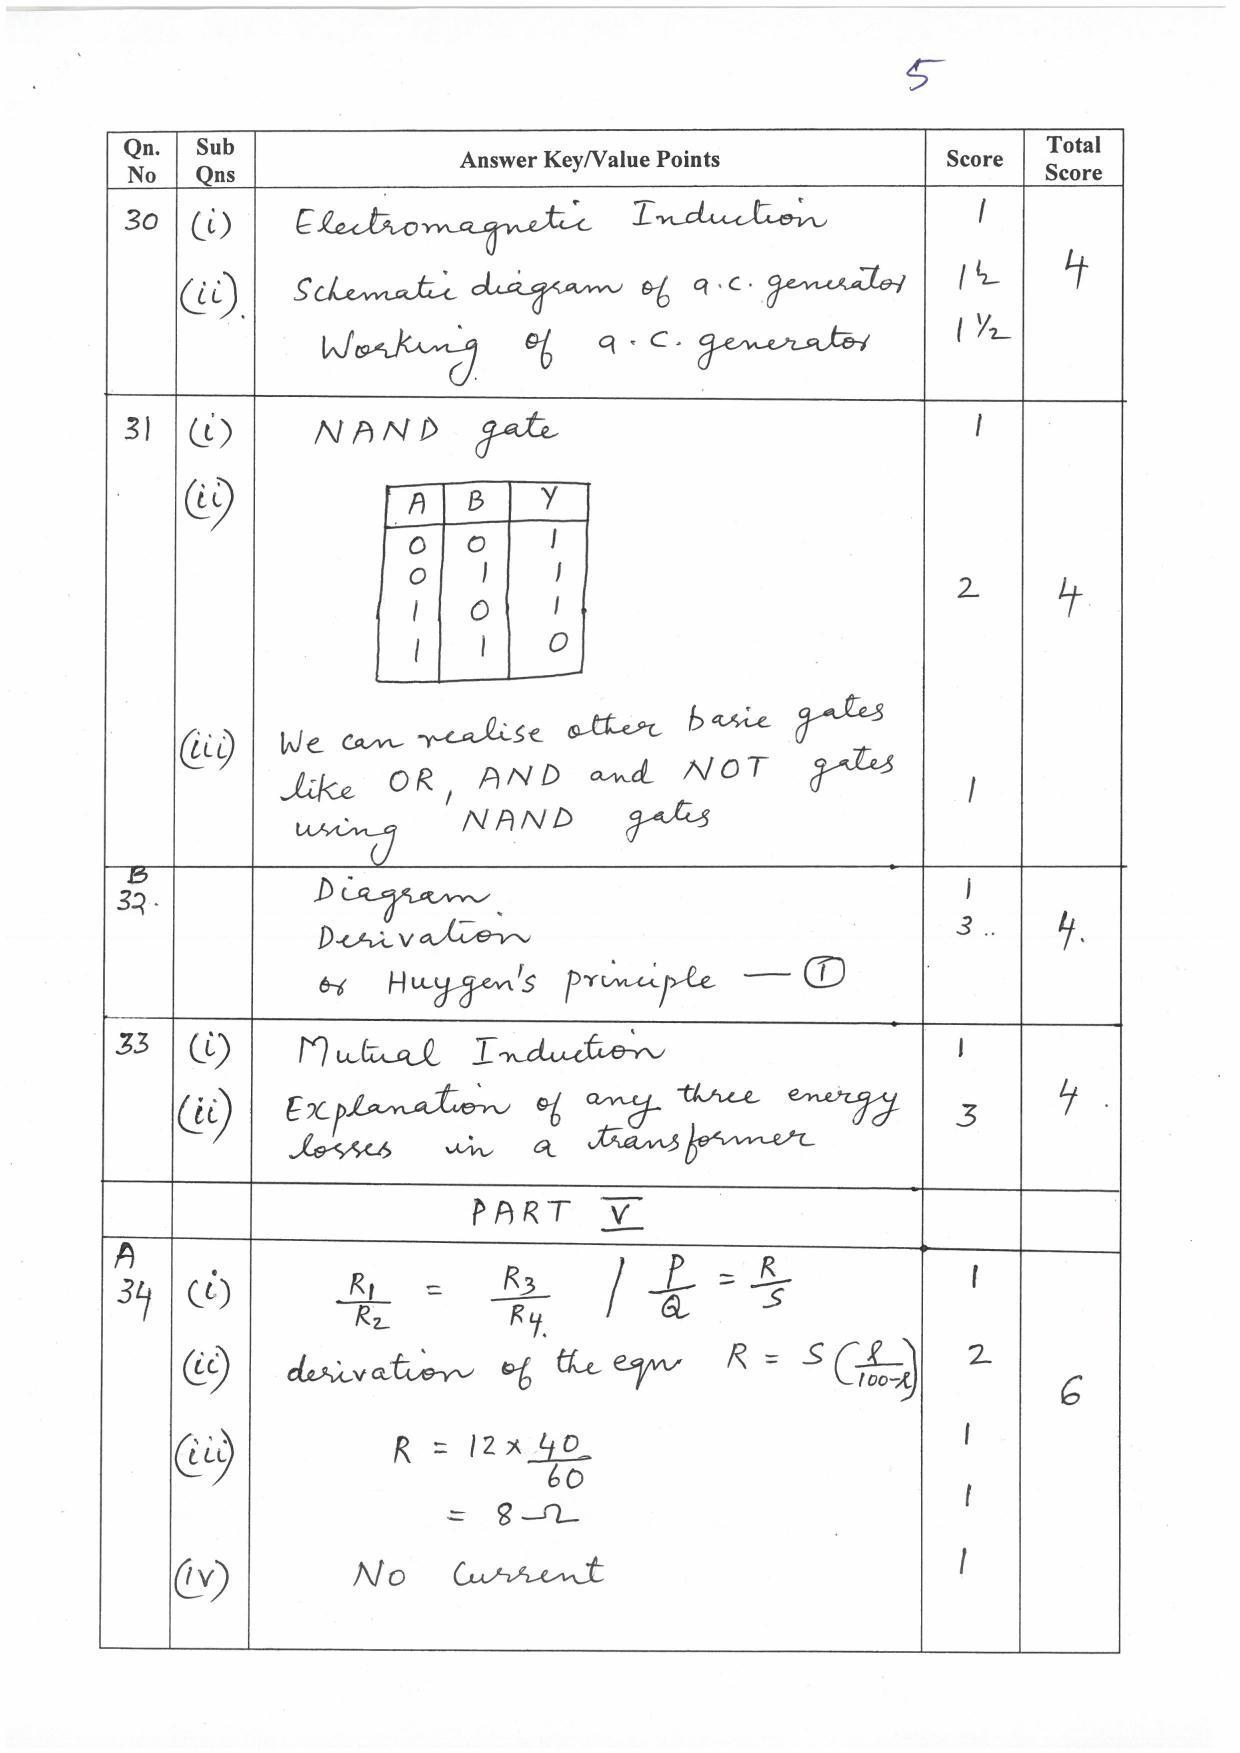 5
Qn. No Sub Qns Answer Key/Value Points Score Total Score
30 (i) Electromagnetic Induction 1
(ii). Schematic diagram of a.c. generator 1½ 4
Working of a.c. generator 1½
31 (i) NAND gate 1
(ii)
A B Y
0 0 1
0 1 1
1 0 1
1 1 0
2 4
(iii) We can realise other basic gates
like OR, AND and NOT gates
using NAND gates 1
B
32. Diagram 1
Derivation 3 .. 4.
or Huygen's principle — ①
33 (i) Mutual Induction 1
(ii) Explanation of any three energy 3 4.
losses in a transformer
PART V
A
34 (i) R1/R2 = R3/R4. / P/Q = R/S 1
(ii) derivation of the eqn. R = S(l/100-l) 2
6
(iii) R = 12 × 40/60 1
= 8 Ω 1
(iv) No current 1